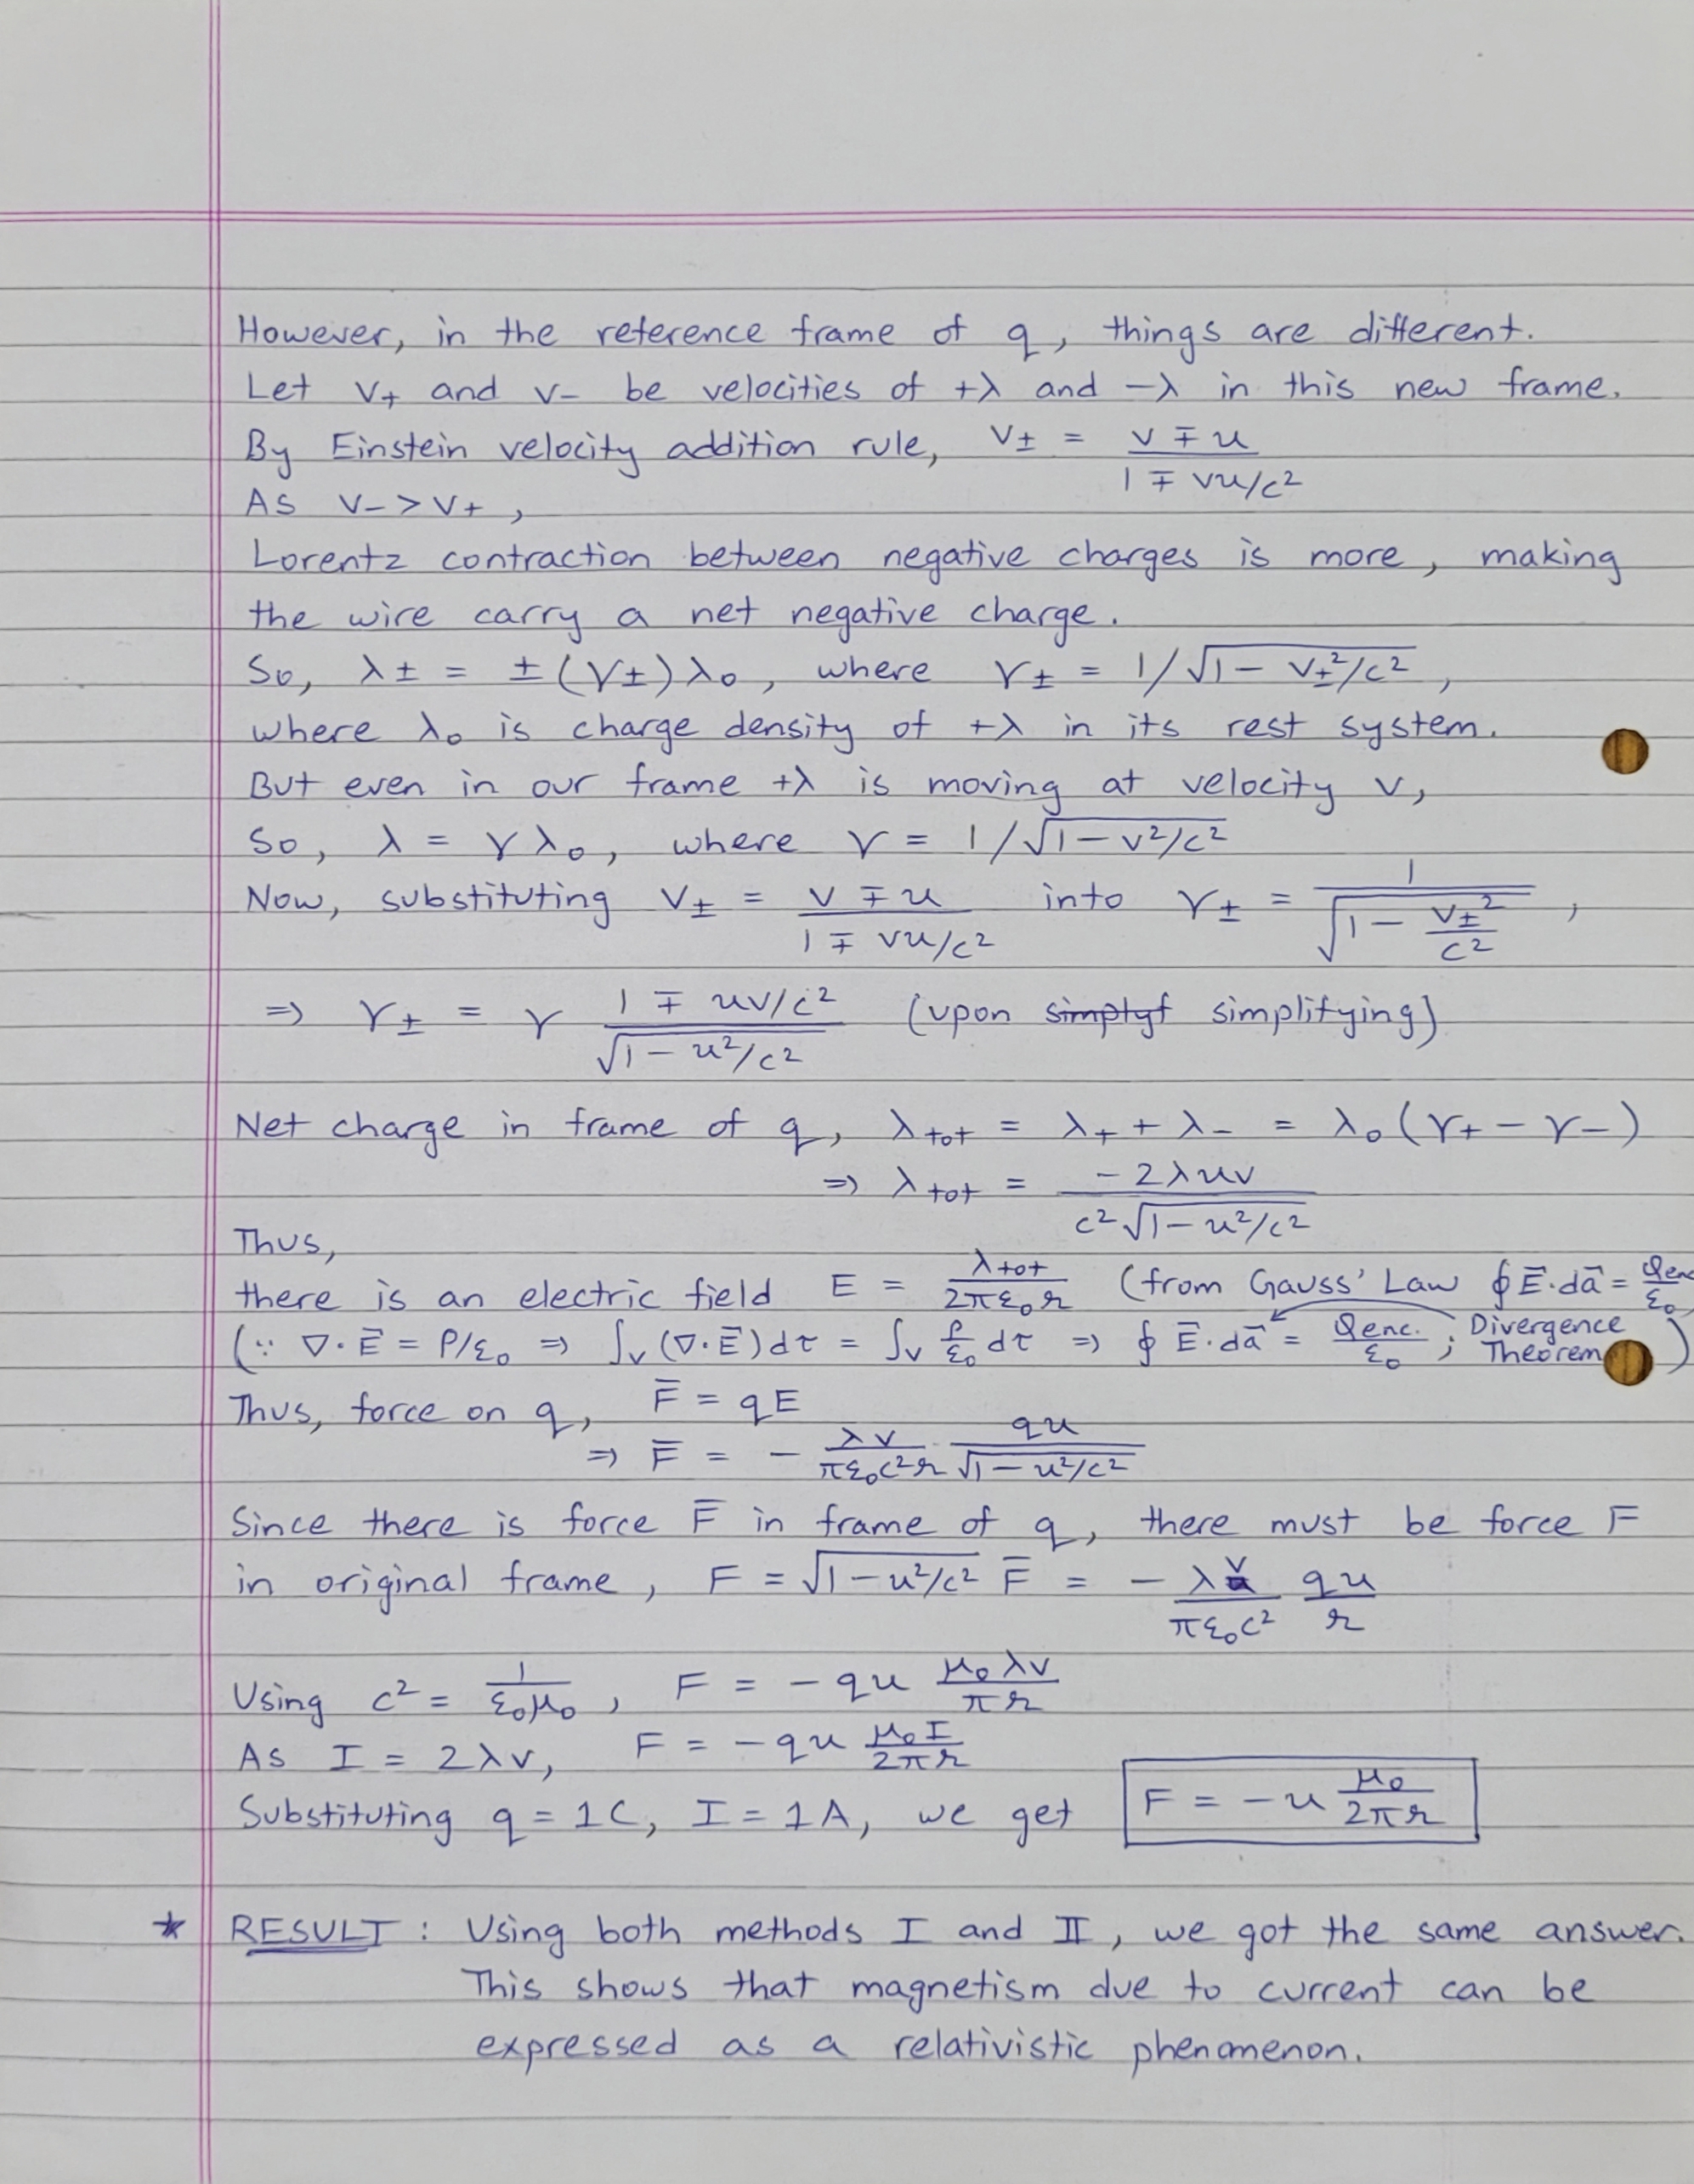 However, in the reference frame of q, things are different.
Let v₊ and v₋ be velocities of +λ and -λ in this new frame.
By Einstein velocity addition rule, v± = (v ∓ u) / (1 ∓ vu/c²)
As v₋ > v₊,
Lorentz contraction between negative charges is more, making
the wire carry a net negative charge.
So, λ± = ±(γ±)λ₀, where γ± = 1/√(1 - v±²/c²),
where λ₀ is charge density of +λ in its rest system.
But even in our frame +λ is moving at velocity v,
So, λ = γλ₀, where γ = 1/√(1 - v²/c²)
Now, substituting v± = (v ∓ u) / (1 ∓ vu/c²) into γ± = 1/√(1 - v±²/c²),
⇒ γ± = γ (1 ∓ uv/c²) / √(1 - u²/c²) (upon simplyf simplifying)
Net charge in frame of q, λtot = λ₊ + λ₋ = λ₀(γ₊ - γ₋)
⇒ λtot = -2λuv / (c²√(1 - u²/c²))
Thus,
there is an electric field E = λtot / (2πε₀r) (from Gauss' Law ∮E⃗·da⃗ = Qenc/ε₀
(∵ ∇·E⃗ = ρ/ε₀ ⇒ ∫ᵥ(∇·E⃗)dτ = ∫ᵥ ρ/ε₀ dτ ⇒ ∮E⃗·da⃗ = Qenc./ε₀ ; Divergence Theorem)
Thus, force on q, F̄ = qE
⇒ F̄ = - λv/(πε₀c²r) · qu/√(1 - u²/c²)
Since there is force F̄ in frame of q, there must be force F
in original frame, F = √(1 - u²/c²) F̄ = - λv/(πε₀c²) qu/r
Using c² = 1/(ε₀μ₀), F = -qu μ₀λv/(πr)
As I = 2λv, F = -qu μ₀I/(2πr)
Substituting q = 1C, I = 1A, we get F = -u μ₀/(2πr)
* RESULT : Using both methods I and II, we got the same answer.
This shows that magnetism due to current can be
expressed as a relativistic phenomenon.